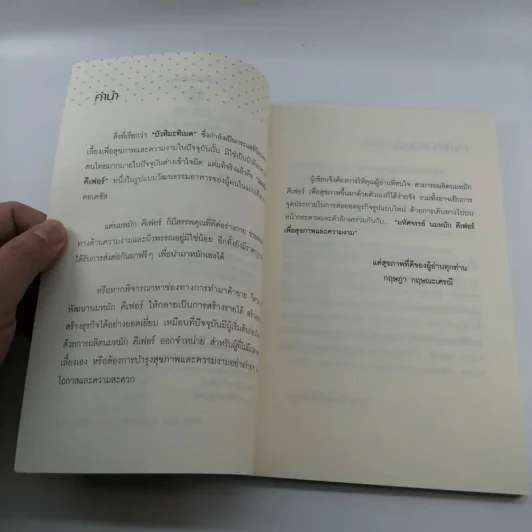 คำนำ
สิ่งที่เรียกว่า "บัวหิมะทิเบต" ซึ่งกำลังเป็นกระแส
เลี้ยงเพื่อสุขภาพและความงามในปัจจุบันนั้น มิใช่เป็นบัว
คนไทยมากมายในปัจจุบันต่างเข้าใจผิด แต่แท้จริงแล้วคือ
คีเฟอร์" หนึ่งในรูปแบบวัฒนธรรมอาหารของผู้คนใน
คอเคซัส
แต่นมหมัก คีเฟอร์ ก็มีสรรพคุณที่ดีต่อร่างกาย
ทางด้านความงามและผิวพรรณอยู่มิใช่น้อย อีกทั้งยังมี
ได้รับการส่งต่อกันมาฟรีๆ เพื่อนำมาหมักเองได้
หรือหากพิจารณาหาช่องทางการทำมาค้าขาย ก็
พัฒนานมหมัก คีเฟอร์ ให้กลายเป็นการสร้างรายได้
สร้างธุรกิจได้อย่างยอดเยี่ยม เหมือนที่ปัจจุบันมีผู้เริ่มต้น
ด้วยการผลิตนมหมัก คีเฟอร์ ออกจำหน่าย สำหรับผู้ที่ไม่มีเวลา
เลี้ยงเอง หรือต้องการบำรุงสุขภาพและความงามอย่างง่ายๆ
โอกาสและความสะดวก
ผู้เขียนจึงต้องการให้คุณผู้อ่านที่สนใจ สามารถผลิตนมหมัก
คีเฟอร์ เพื่อสุขภาพขึ้นมาด้วยตัวเองก็ได้ง่ายจัง รวมทั้งอาจเป็นการ
จุดประกายในการต่อยอดธุรกิจรูปแบบใหม่ ด้วยการเดินทางไปบน
หน้ากระดาษและตัวอักษรร่วมกันกับ... "มหัศจรรย์ นมหมัก คีเฟอร์
เพื่อสุขภาพและความงาม"
แด่สุขภาพที่ดีของผู้อ่านทุกท่าน
กฤษฎา กฤษณะเศรณี